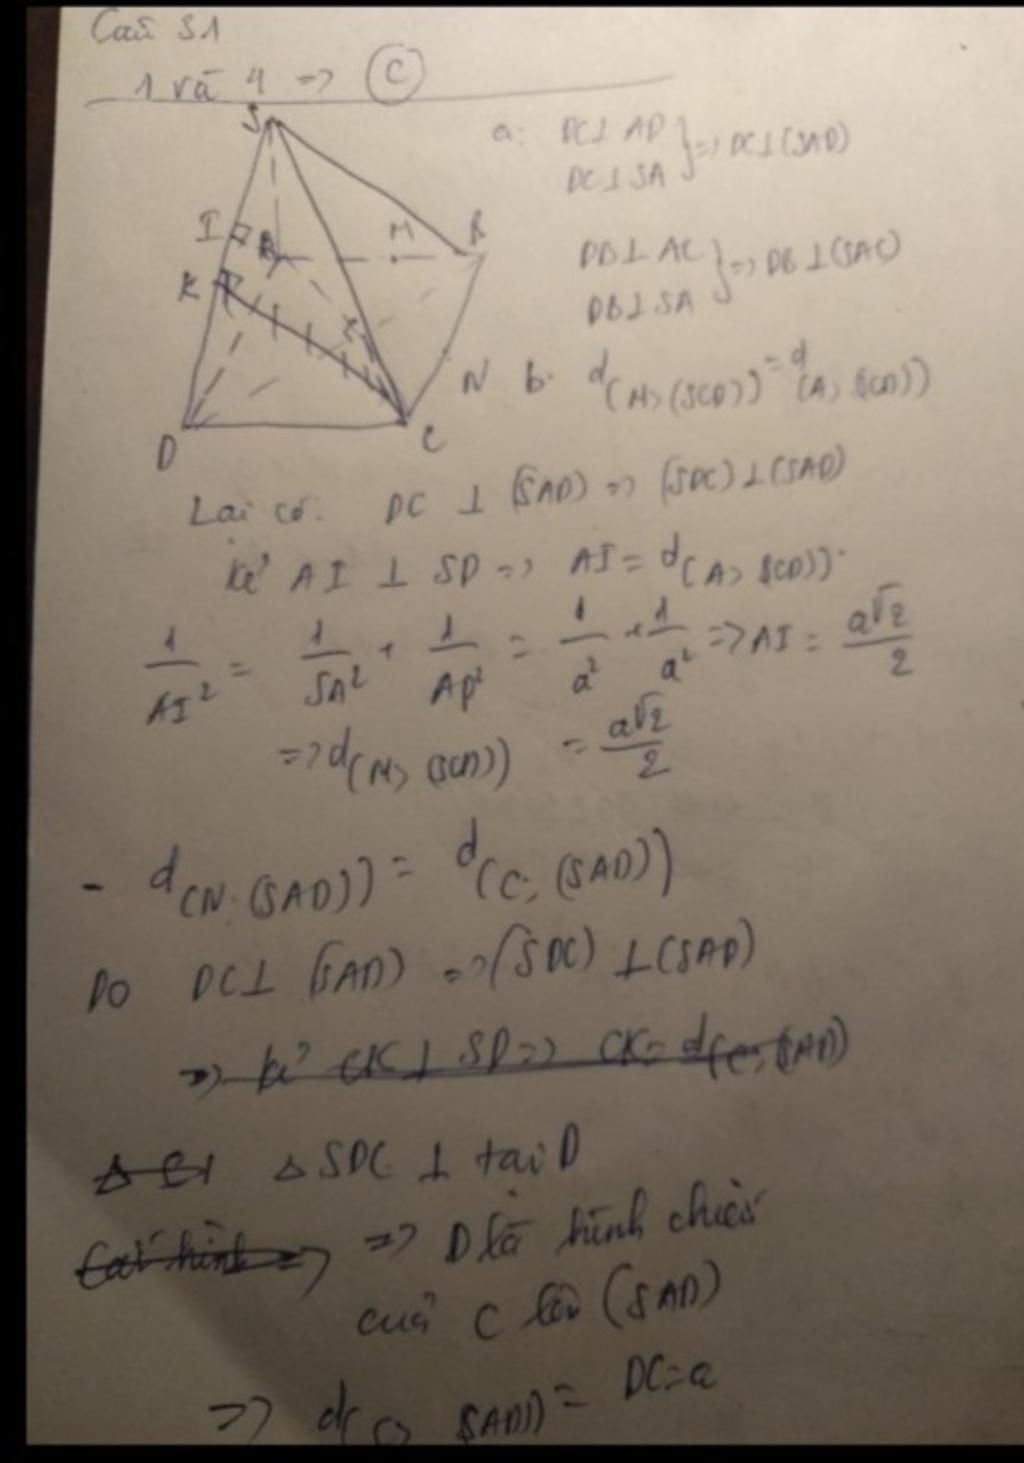 Câu 31
1 và 4 => C
S
a: DC⊥AD } => DC⊥(SAD)
DC⊥SA
I M B
K
DB⊥AC } => DB⊥(SAC)
DB⊥SA
N
b. d(M, (SCD)) = d(A, (SCD))
D C
Lại có: DC ⊥ (SAD) => (SDC)⊥(SAD)
kẻ AI ⊥ SD => AI = d(A, (SCD)).
1/AI² = 1/SA² + 1/AD² = 1/a² + 1/a² => AI = a√2/2
=> d(M, (SCD)) = a√2/2
- d(N; (SAD)) = d(C; (SAD))
Do DC⊥ (SAD) => (SDC) ⊥(SAD)
=> kẻ CK⊥ SD => CK= d(C, (SAD))
Δ SDC ⊥ tại D
=> D là hình chiếu
của C lên (SAD)
=> d(C, (SAD)) = DC=a